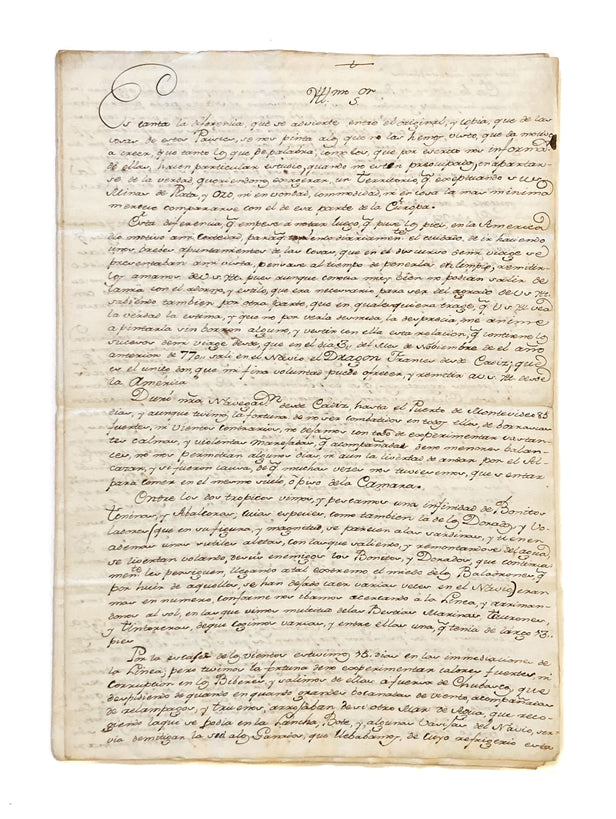 Yll.mo S.or
Es tanta la diferencia, que se advierte entre el original, y copia, que de las
cosas de estos Paises, se nos pinta alos que no las hemos visto, que da motivo
a creer, que tanto los que de palabra, como los que por escrito nos informan
de ellas, hacen particular estudio, quando no esten preocupados, en apartar
se de la verdad queriendonos un Territorio, q.e exceptuando sus
Minas de Plata, y Oro, ni en bondad, commodidad, ni en cosa la mas minima
merece compararse con el de esa parte de la Europa.
Esta diferencia q.e empese a notar luego q.e puse los pies, en la America
dio motivo ami cortedad, para q.e diariamen.te el cuidado, de ir haciendo
unos breves apuntamientos de las cosas, que en el discurso demi viage se
presentaban ami vista, pense al tiempo de ponerlas en limpio, remitir
los amanos de V.S. Yll. pues aunque conocia muy bien no podian salir de
lanta con el adorno, y estilo, que era necesario para ser del agrado de V.S. Yll.
sabiendo tambien por otra parte, que en qualquiera trage, q.e V.S. Yll. vea
la verdad la estima, y que no por verla desnuda, la desprecia, me anime
a pintarla sin borron alguno, y vestir con ella esta relacion, q.e contiene los
sucesos demi viage desde, que en el dia 31, del Mes de Noviembre de el año
anterior de 770, sali en el Navio el Dragon Frances desde Cadiz; que
es el unico don, que mi fina voluntad puede ofrecer, y remitir a V.S. Yll. desde
la America
Duro nra. Navegac.on desde Cadiz, hasta el Puerto de Montevideo 85
dias, y aunque tuvimos la fortuna de no ser combatidos en todos ellos, de borrascas
fuertes, ni vientos contrarios, no dejamos con todo de experimentar bastan
tes calmas, y violentas marejadas, q.e acompañadas de no menores balan
ces, no nos permitian algunos dias, ni aun la livertad de andar por el Al
cazar, y se fueron causa, de q.e muchas veces nos tuviesemos, que sentar
para comer en el mismo suelo, ò piso de la Camara.
Entre los dos tropicos vimos, y pescamos una infinidad de Bonitos
toninas, y Abalcoras, cuias especies, como tambien la de los Dorados, y Vo
ladores (que en su figura, y magnitud, se parecen alas sardinas, y tienen
ademas unas sutiles aletas, con las que saliendo, y remontandose del agua,
se livertan volando, de sus enemigos los Bonitos, y Dorados, que continua
men.te los persiguen, llegando atal estremo el miedo de los Baladrones, q.e
por huir de aquellos, se han dejado caer varias veces en el Navio) eran
mas en numero, conforme nos ibamos acercando a la Linea, y arriman
donos al sol, en las que vimos multitud de las Bestias Marinas, tiburones,
y tintoreras, de que cogimos varias, y entre ellas una, q.e tenia de largo 13
pies.
Por la escasez de los vientos estuvimos 15 dias en las immediaciones de
la Linea, pero tuvimos la fortuna de no experimentar calores fuertes, ni
corrupcion en los Viberes, y salimos de ellas a fuerza de Chubascos, que
despidiendo de quando en quando grandes bocanadas de viento, acompañadas
de relampagos, y truenos, arrojaban de si otro Mar de Agua, que reco
giendo la que se podia en la Lancha, Bote, y algunas Vasijas del Navio, ser
via de mitigar la sed alos Ganados, que llebabamos, de cuyo refrigerio esta